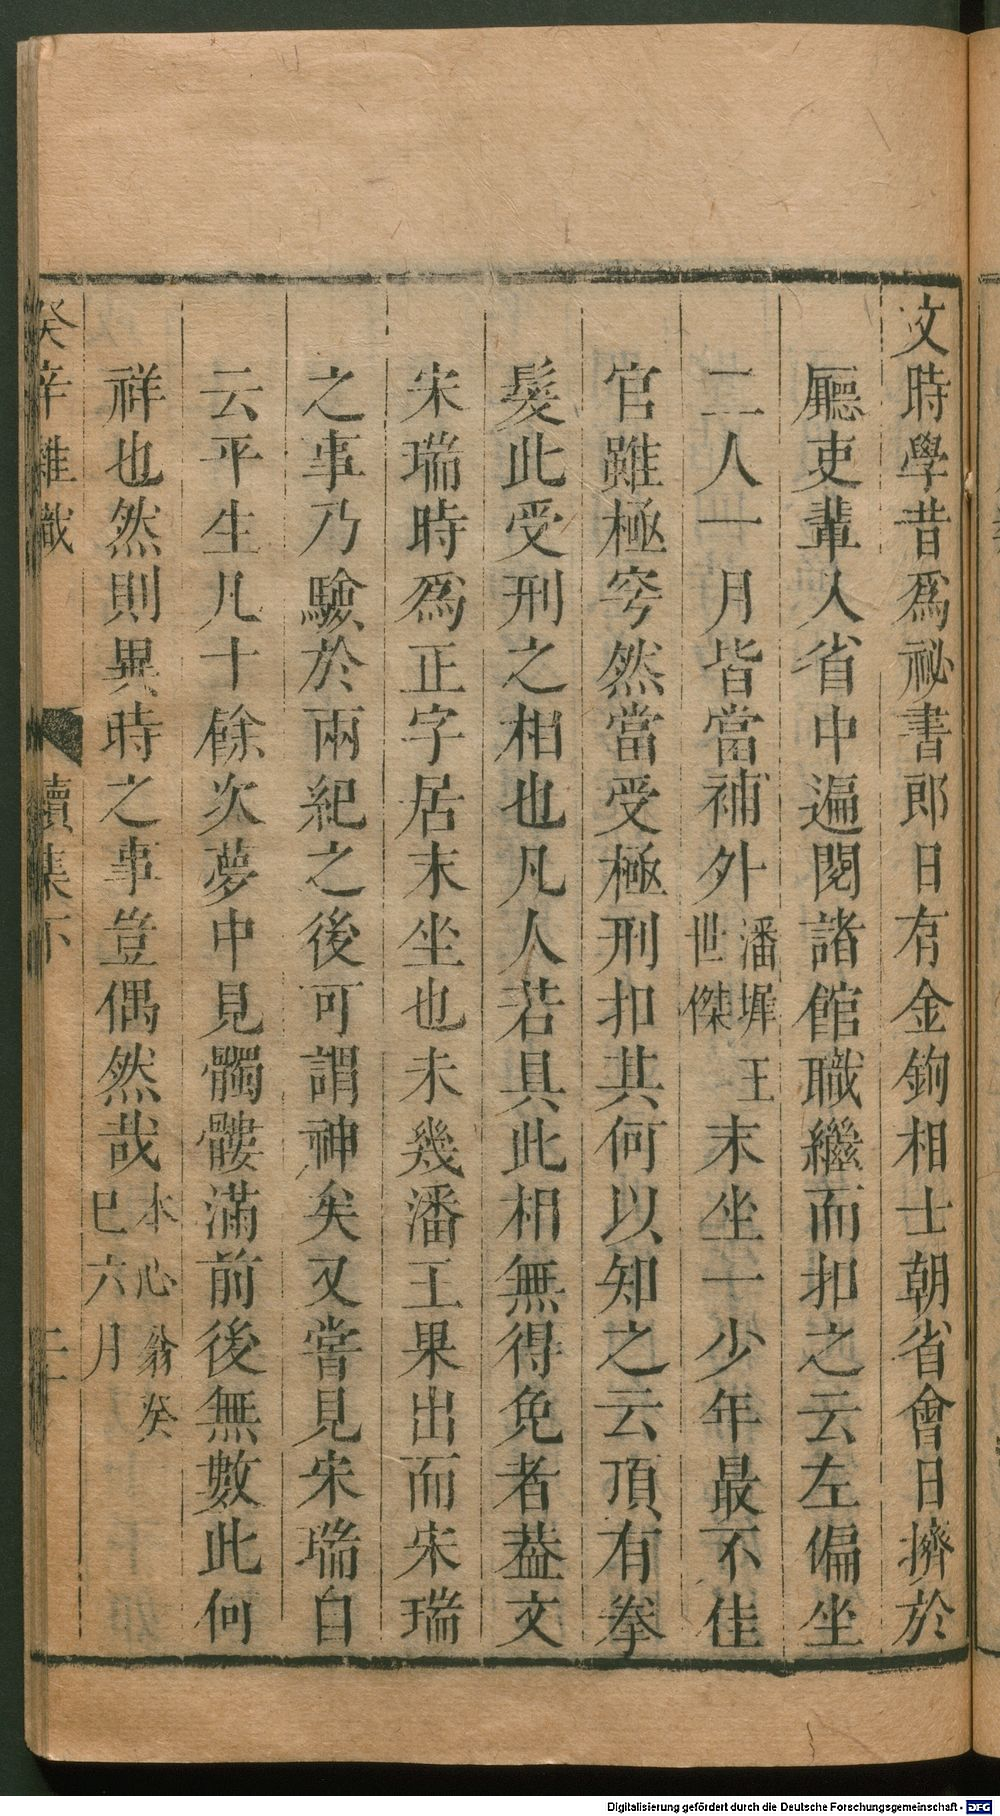 文時學昔爲祕書郎日有金鉤相士朝省會日擠於
廳吏輩人省中遍閱諸館職繼而扣之云左偏坐
二人一月皆當補外潘墀王世傑末坐一少年最不佳
官雖極穹然當受極刑扣其何以知之云頂有拳
髮此受刑之相也凡人若具此相無得免者葢文
宋瑞時爲正字居末坐也未幾潘王果出而宋瑞
之事乃驗於兩紀之後可謂神矣又嘗見宋瑞自
云平生凡十餘次夢中見髑髏滿前後無數此何
祥也然則異時之事豈偶然哉本心翁癸巳六月
癸辛雜識 續集下 二
Digitalisierung gefördert durch die Deutsche Forschungsgemeinschaft - DFG